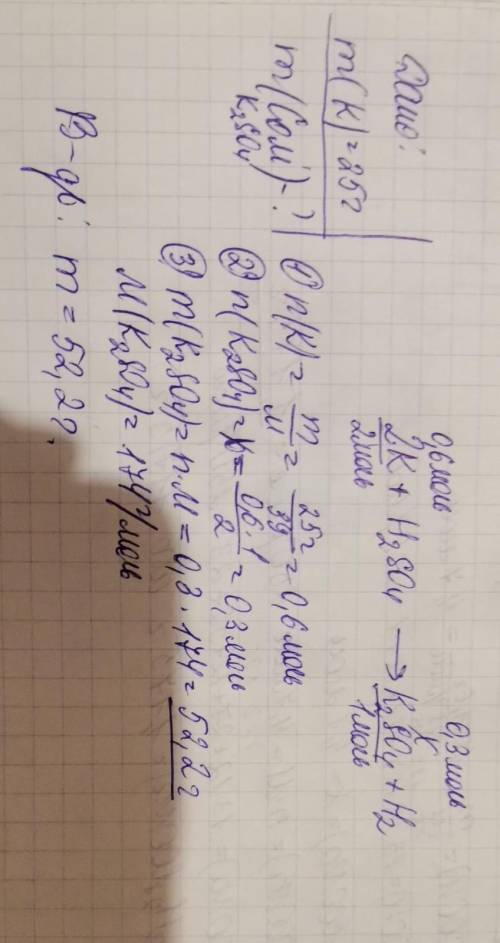 Дано:
m(K)=25г
m(солі)-?
K₂SO₄
0,6моль 0,3моль
x
2K + H₂SO₄ → K₂SO₄ + H₂
2моль 1моль
① n(K) = m/M = 25г/39 = 0,6моль
② n(K₂SO₄)=x= 0,6·1/2 = 0,3моль
③ m(K₂SO₄)=n·M = 0,3·174= 52,2г
M(K₂SO₄)=174г/моль
В-дь: m = 52,2г.